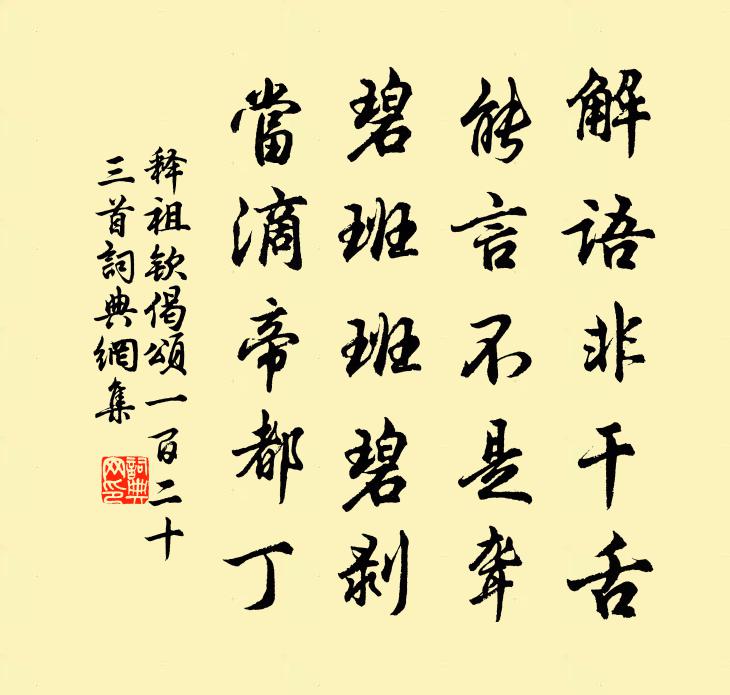 解語非干舌
能言不是聋
碧班班碧剥
當滴帝都丁
释祖钦偈頌一百二十
三首詞典網集
詞典网印